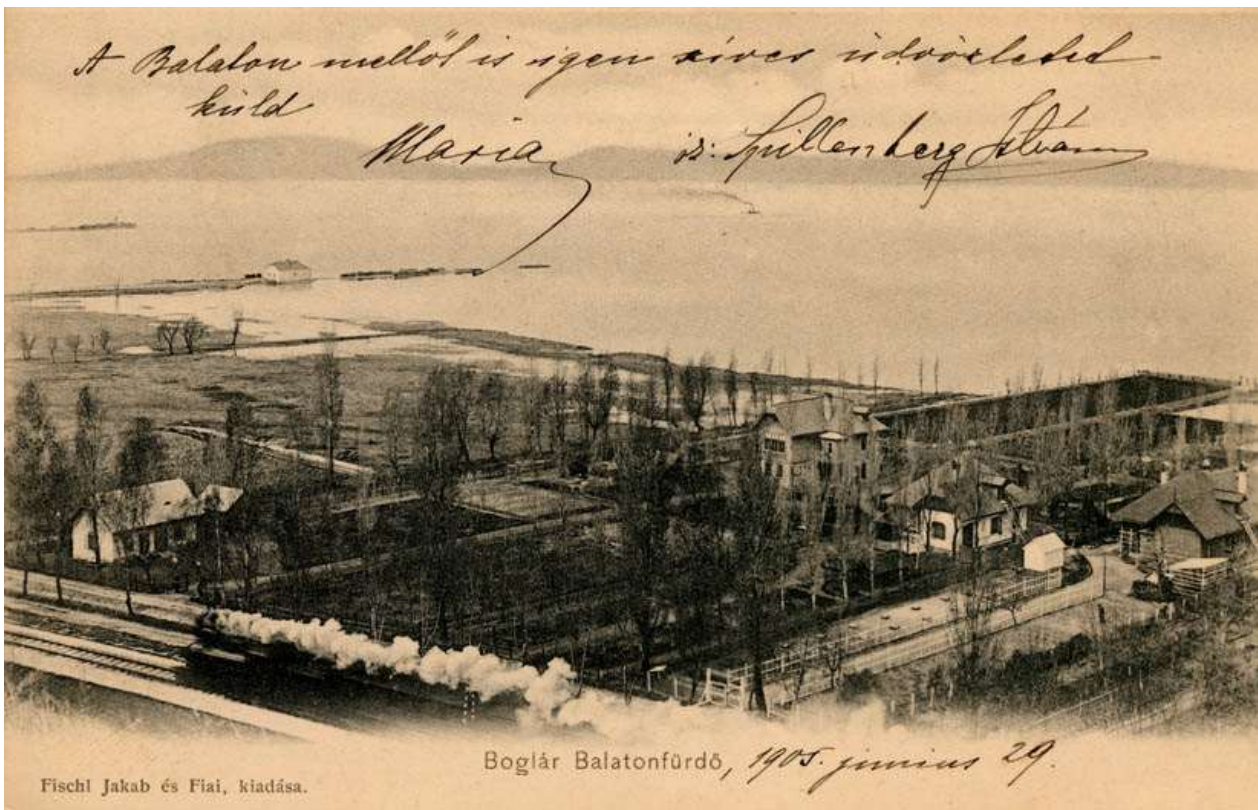 A Balaton mellől is igen szíves üdvözletet
küld
Maria és: Spillenberg István
Boglár Balatonfürdő, 1905. junius 29.
Fischl Jakab és Fiai, kiadása.